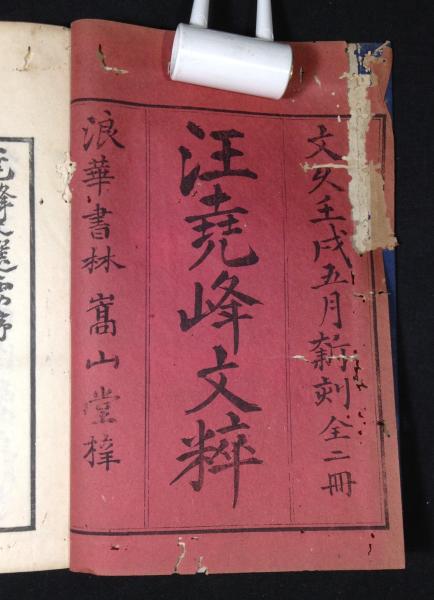 文久壬戌五月新刻 全二冊
汪堯峰文粹
浪華書林 嵩山堂梓